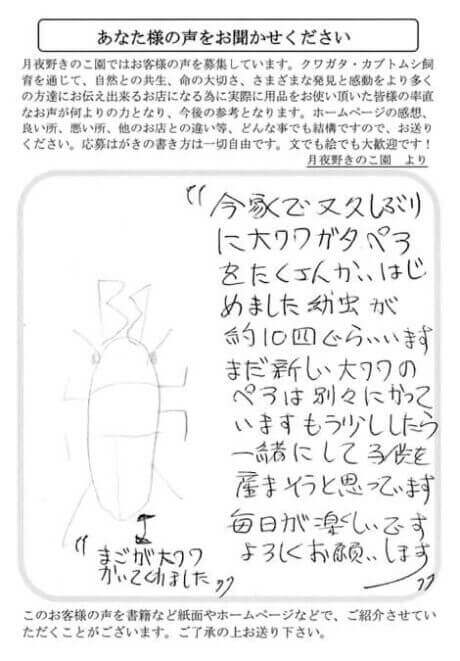 あなた様の声をお聞かせください
月夜野きのこ園ではお客様の声を募集しています。クワガタ・カブトムシ飼
育を通じて、自然との共生、命の大切さ、さまざまな発見と感動をより多く
の方達にお伝え出来るお店になる為に実際に用品をお使い頂いた皆様の率直
なお声が何よりの力となり、今後の参考となります。ホームページの感想、
良い所、悪い所、他のお店との違い等、どんな事でも結構ですので、お送り
ください。応募はがきの書き方は一切自由です。文でも絵でも大歓迎です！
月夜野きのこ園　より
〃今家で又久しぶり
に大クワガタペア
をたくさんかいはじ
めました幼虫が
約10匹ぐらいいます
まだ新しい大クワの
ペアは別々にかって
いますもう少ししたら
一緒にして子供を
産まそうと思っています
毎日が楽しいです
よろしくお願いします〃
〃まごが大クワ
かいてくれました〃
このお客様の声を書籍など紙面やホームページなどで、ご紹介させてい
ただくことがございます。ご了承の上お送り下さい。